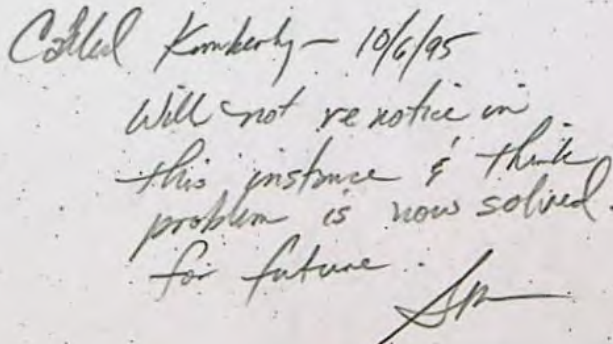 Called Kimberly - 10/6/95
Will not renotice in
this instance & think
problem is now solved
for future.